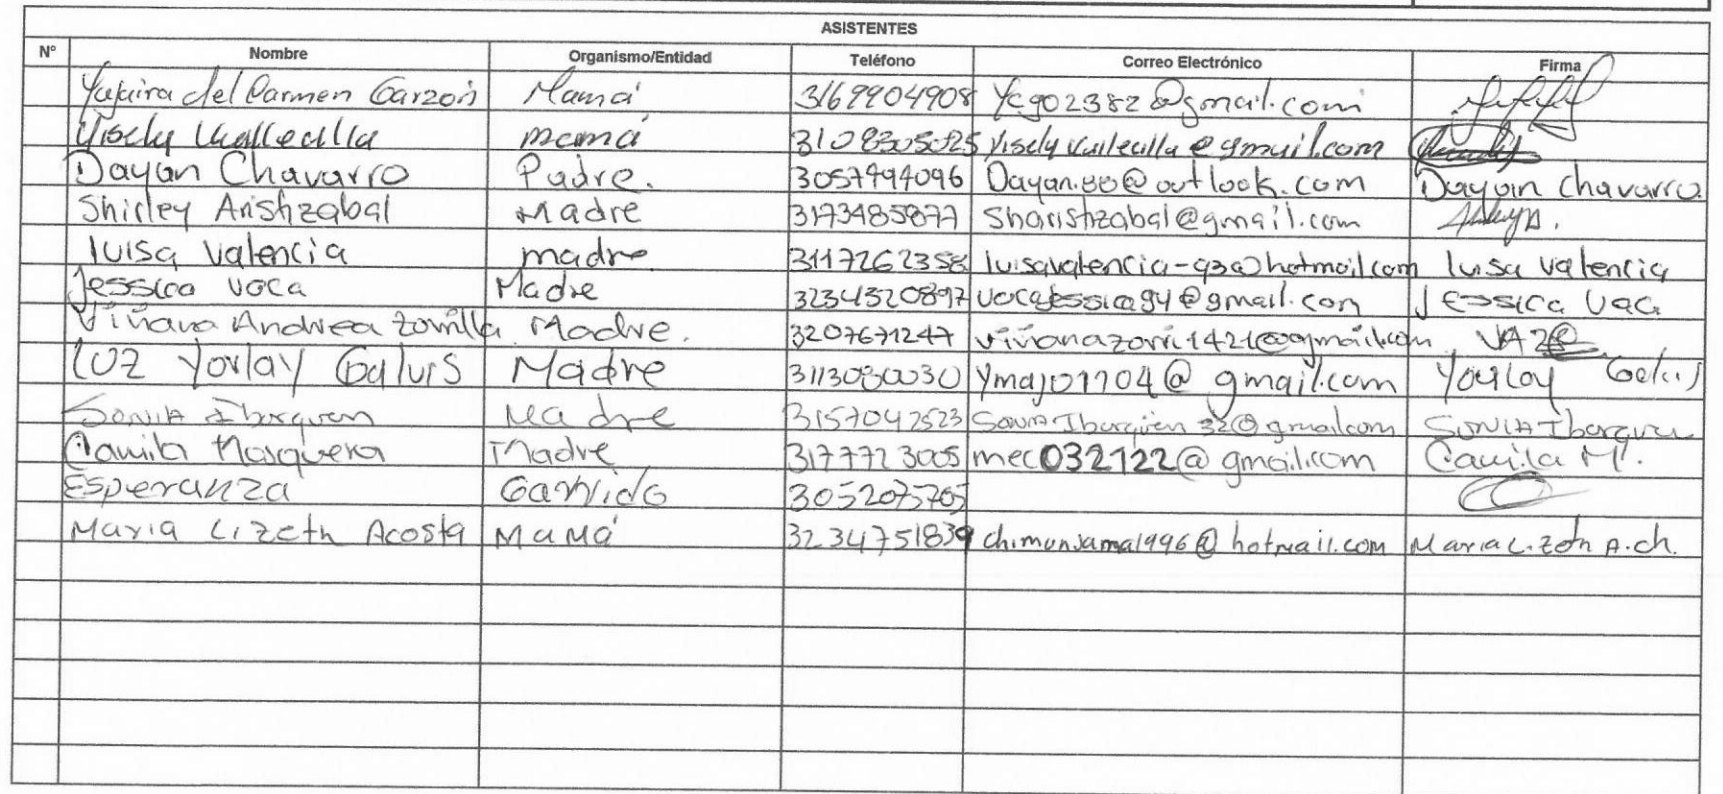 ASISTENTES
N° Nombre Organismo/Entidad Teléfono Correo Electrónico Firma
Yajaira del Carmen Garzon Mamá 3169904908 Ycg02382@gmail.com
Visely Vallecilla mamá 3108305025 Viselyvallecilla@gmail.com
Dayan Chavarro Padre. 3057494096 Dayan.80@outlook.com Dayan Chavarro.
Shirley Aristizabal Madre 3173485877 Sharistizabal@gmail.com
luisa valencia madre 3117262358 luisavalencia-93@hotmail.com luisa valencia
Jessica vaca Madre 3234320897 vacajessica94@gmail.com Jessica Vaca
Viviana Andrea Zorrilla Madre. 3207671247 vivianazorri1421@gmail.com VAZ
LUZ Yorlay Galvis Madre 3113080030 Ymaj01104@gmail.com Yorlay Galvis
SONIA Ibarguen Madre 3157042523 SoniaIbarguen32@gmail.com SONIA Ibarguen
Camila Mosquera Madre 3177723005 mec032122@gmail.com Camila M.
Esperanza Garrido 3052075705
Maria Lizeth Acosta MaMá 3234751839 chimunjama1996@hotmail.com Maria Lizeth A.ch.